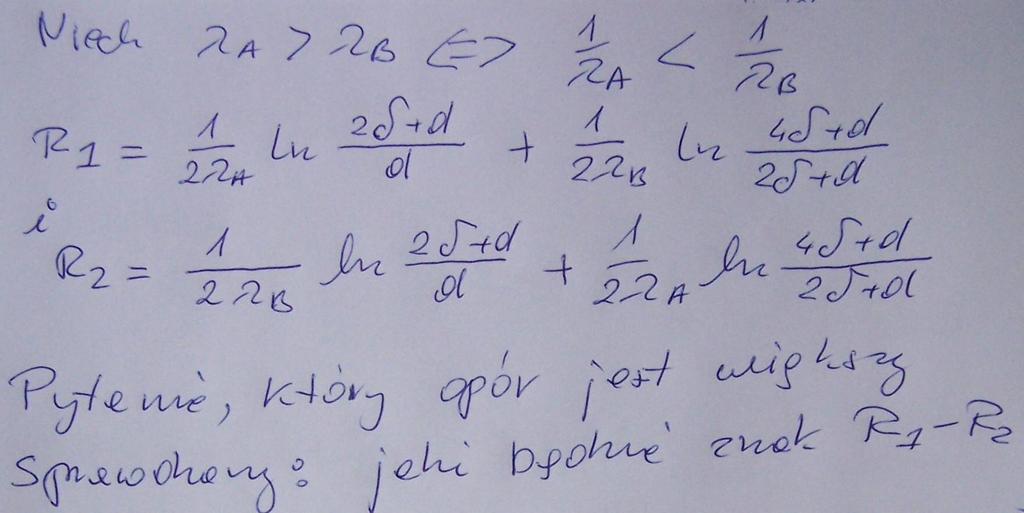 Niech λA > λB <=> 1/λA < 1/λB
R1 = 1/2λA ln 2δ+d/d + 1/2λB ln 4δ+d/2δ+d
i
R2 = 1/2λB ln 2δ+d/d + 1/2λA ln 4δ+d/2δ+d
Pytanie, który opór jest większy
Sprawdzamy: jaki będzie znak R1-R2